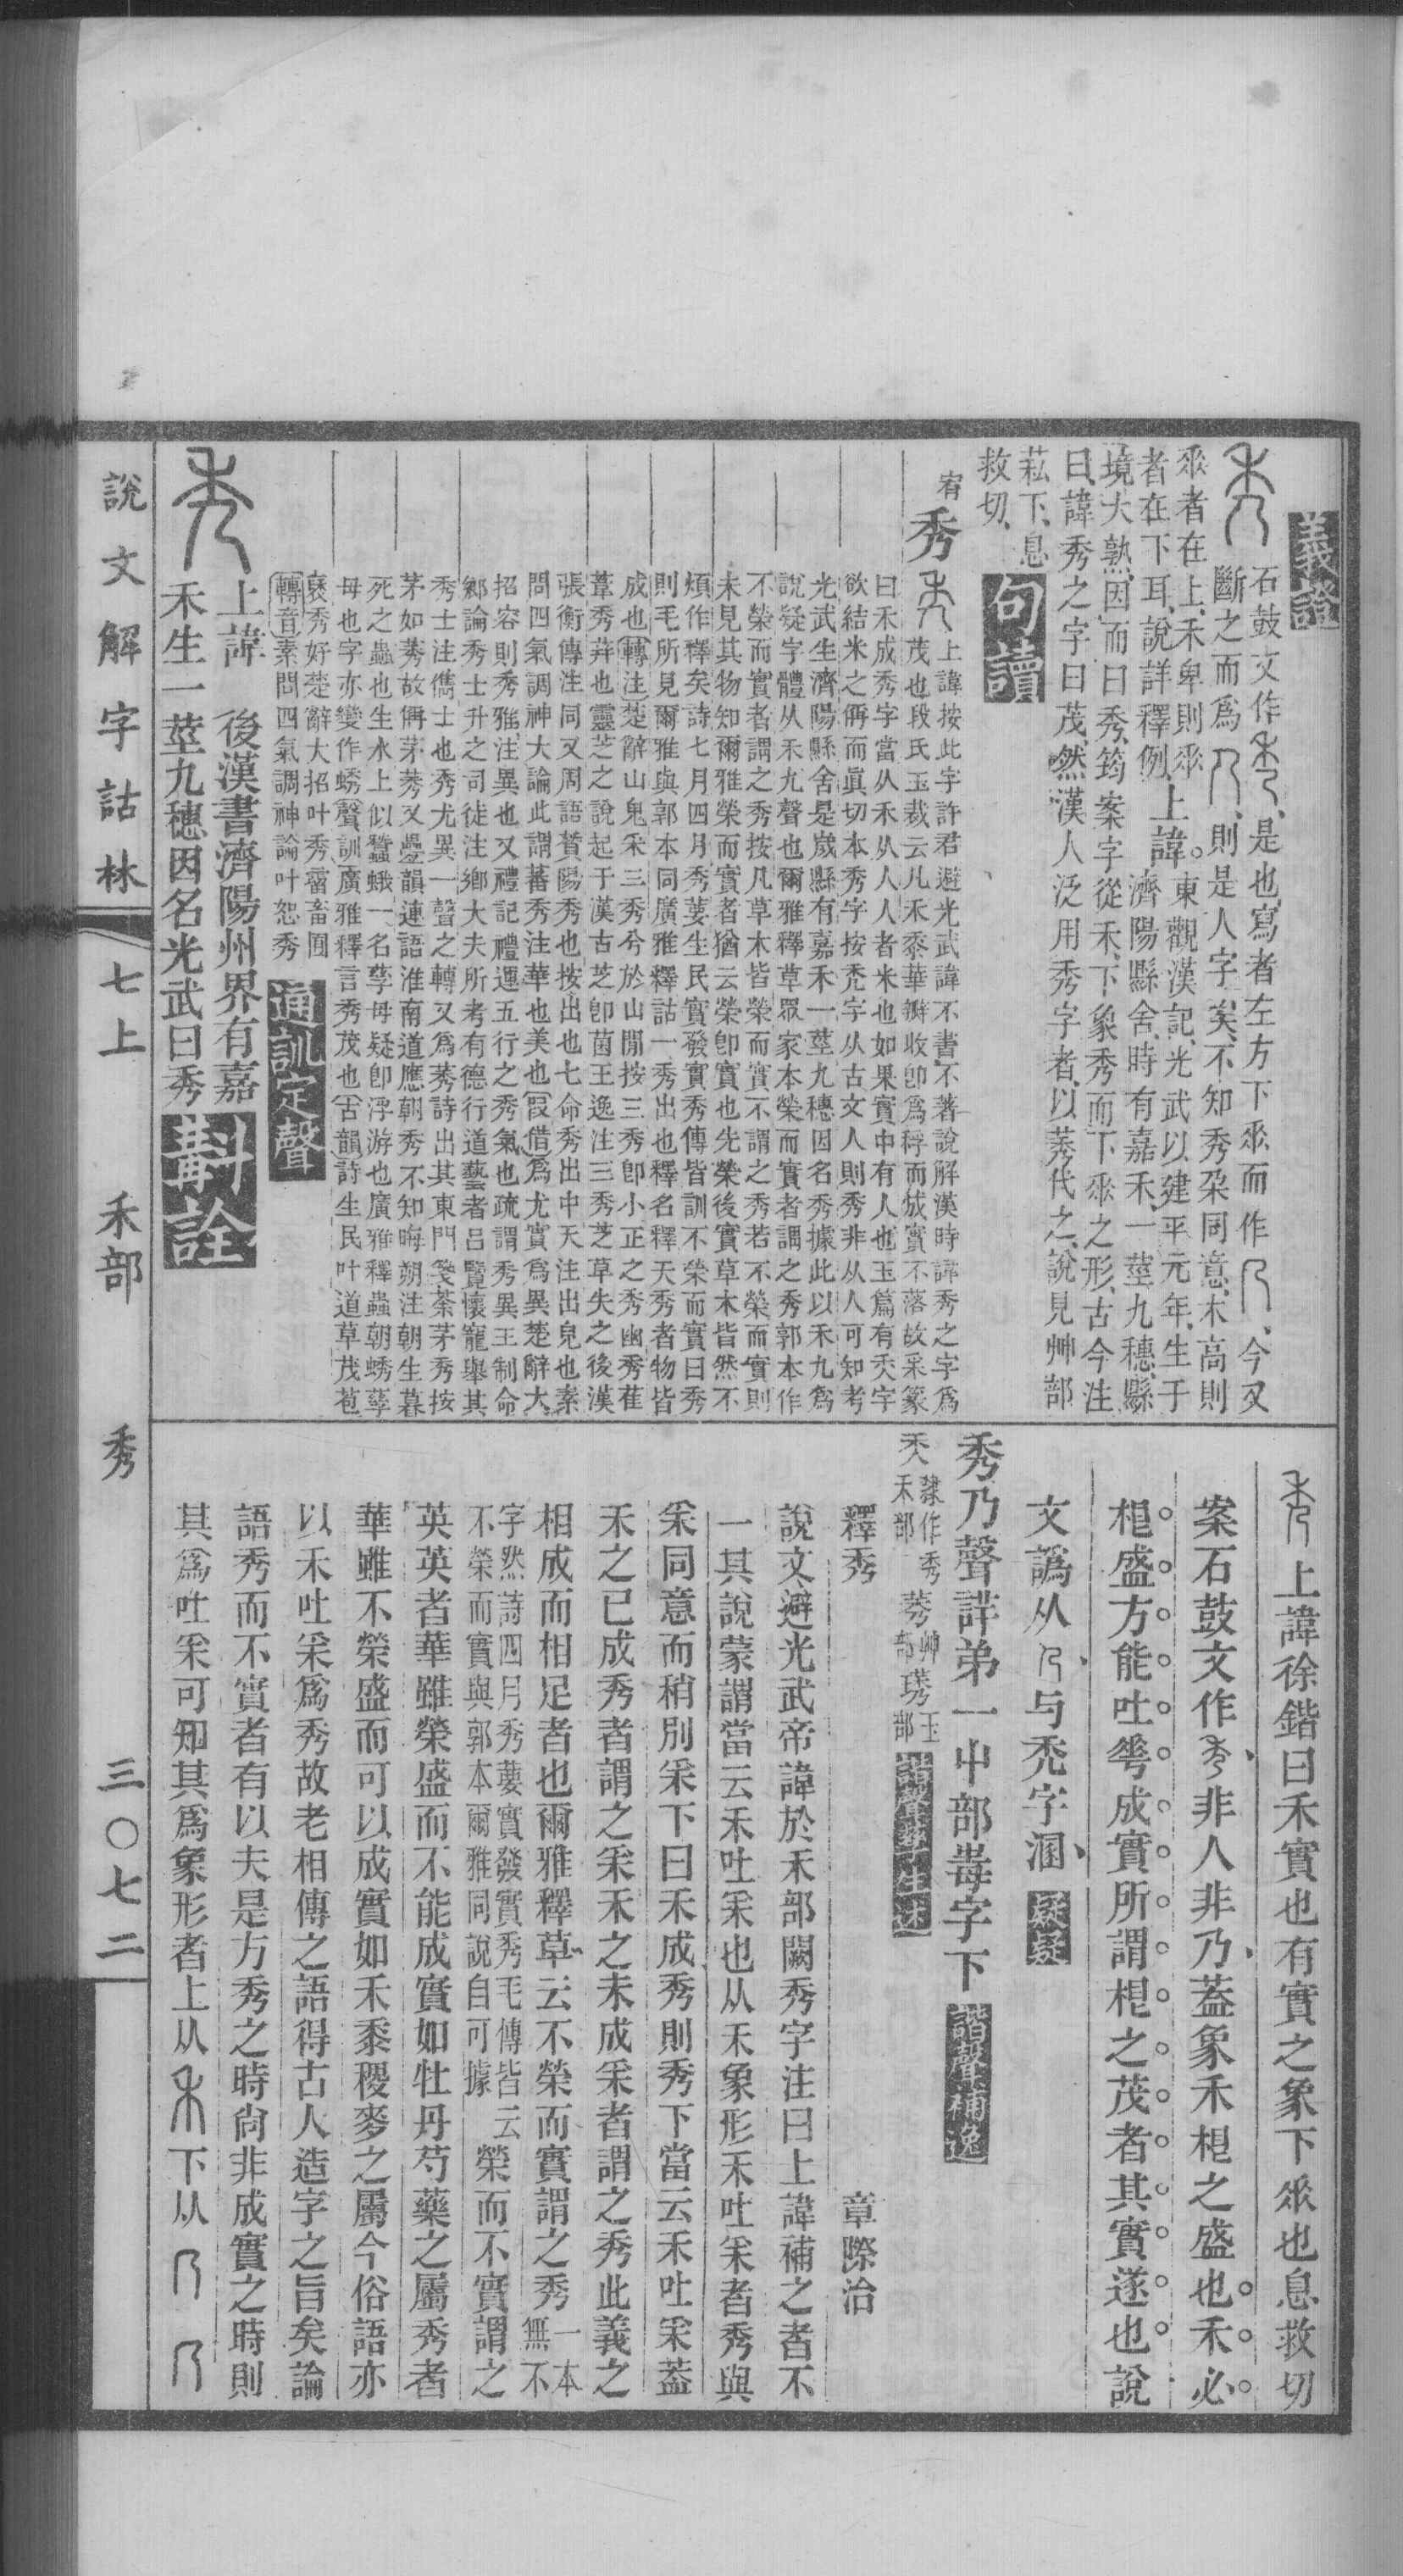 義證
石鼓文作、是也寫者左方下𠂹而作、今又
斷之而爲、則是人字矣不知秀朶同意、木高則
𠂹者在上、禾卑則𠂹
者在下耳、說詳釋例、上諱。東觀漢記、光武以建平元年、生于
濟陽縣舍、時有嘉禾一莖九穗、縣
境大熟、因而曰秀、筠案字從禾、下象秀而下𠂹之形、古今注
曰、諱秀之字曰茂、然漢人泛用秀字者、以莠代之、說見艸部
菘下、息
救切、
句讀
宥
秀
上諱按此字許君避光武諱不書不著說解漢時諱秀之字爲
茂也段氏玉裁云凡禾黍華瓣收卽爲稃而成實不落故采篆
曰禾成秀字當从禾从人人者米也如果實中有人也玉篇有秂字
欲結米之偁而眞切本秀字按禿字从古文人則秀非从人可知考
光武生濟陽縣舍是歲縣有嘉禾一莖九穗因名秀據此以禾九爲
說疑字體从禾九聲也爾雅釋草眾家本榮而實者謂之秀郭本作
不榮而實者謂之秀按凡草木皆榮而實不謂之秀若不榮而實則
未見其物知爾雅榮而實者猶云榮卽實也先榮後實草木皆然不
煩作釋矣詩七月四月秀葽生民實發實秀傳皆訓不榮而實曰秀
則毛所見爾雅與郭本同廣雅釋詁一秀出也釋名釋天秀者物皆
成也轉注楚辭山鬼采三秀兮於山閒按三秀卽小正之秀幽秀萑
葦秀荓也靈芝之說起于漢古芝卽菌王逸注三秀芝草失之後漢
張衡傳注同又周語贊陽秀也按出也七命秀出中天注出皃也素
問四氣調神大論此謂蕃秀注華也美也叚借爲尤實爲異楚辭大
招容則秀雅注異也又禮記禮運五行之秀氣也疏謂秀異王制命
鄉論秀士升之司徒注鄉大夫所考有德行道藝者呂覽懷寵舉其
秀士注儁士也秀尤異一聲之轉又爲莠詩出其東門箋荼茅秀按
茅如莠故偁茅莠又疊韻連語淮南道應朝秀不知晦朔注朝生暮
死之蟲也生水上似蠶蛾一名孳母疑卽浮游也廣雅釋蟲朝蜏孳
母也字亦變作蜏聲訓廣雅釋言秀茂也古韻詩生民叶道草茂苞
褎秀好楚辭大招叶秀霤畜囿
轉音素問四氣調神論叶恕秀
通訓定聲
上諱 後漢書濟陽州界有嘉
禾生一莖九穗因名光武曰秀
斠詮
說文解字詁林 七上 禾部 秀 三〇七二
上諱徐鍇曰禾實也有實之象下𠂹也息救切
案石鼓文作非人非乃葢象禾䄫之盛也禾必
䄫盛方能吐𠌶成實所謂䄫之茂者其實遂也說
文譌从与禿字溷
疑疑
秀乃聲詳弟一屮部毒字下
諧聲補逸
秂 隸作秀禾部 莠艸部 琇玉部
諧聲孳生述
釋秀 章際治
說文避光武帝諱於禾部闕秀字注曰上諱補之者不
一其說蒙謂當云禾吐采也从禾象形禾吐采者秀與
采同意而稍別采下曰禾成秀則秀下當云禾吐采葢
禾之已成秀者謂之采禾之未成采者謂之秀此義之
相成而相足者也爾雅釋草云不榮而實謂之秀一本無不
字然詩四月秀葽實發實秀毛傳皆云
不榮而實與郭本爾雅同說自可據 榮而不實謂之
英英者華雖榮盛而不能成實如牡丹芍藥之屬秀者
華雖不榮盛而可以成實如禾黍稷麥之屬今俗語亦
以禾吐采爲秀故老相傳之語得古人造字之旨矣論
語秀而不實者有以夫是方秀之時尙非成實之時則
其爲吐采可知其爲象形者上从下从